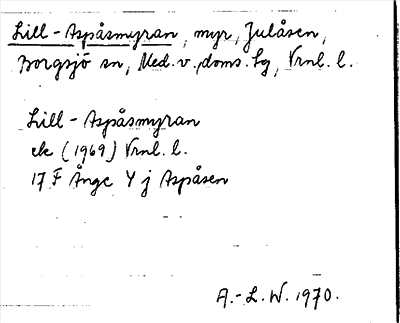 Lill-Aspåsmyran, myr, Julåsen,
Borgsjö sn, Med. v. doms. lg, Vrnl. l.
Lill-Aspåsmyran
ek (1969) Vrnl. l.
17 F Ånge Y j Aspåsen
A.-L. W. 1970.